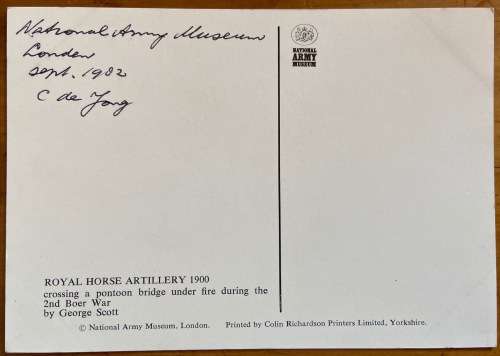 National Army Museum
London
sept. 1982
C de Jong
NATIONAL
ARMY
MUSEUM
ROYAL HORSE ARTILLERY 1900
crossing a pontoon bridge under fire during the
2nd Boer War
by George Scott
© National Army Museum, London. Printed by Colin Richardson Printers Limited, Yorkshire.